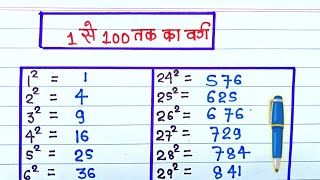 1 से 100 तक का वर्ग
1² = 1
2² = 4
3² = 9
4² = 16
5² = 25
6² = 36
24² = 576
25² = 625
26² = 676
27² = 729
28² = 784
29² = 841